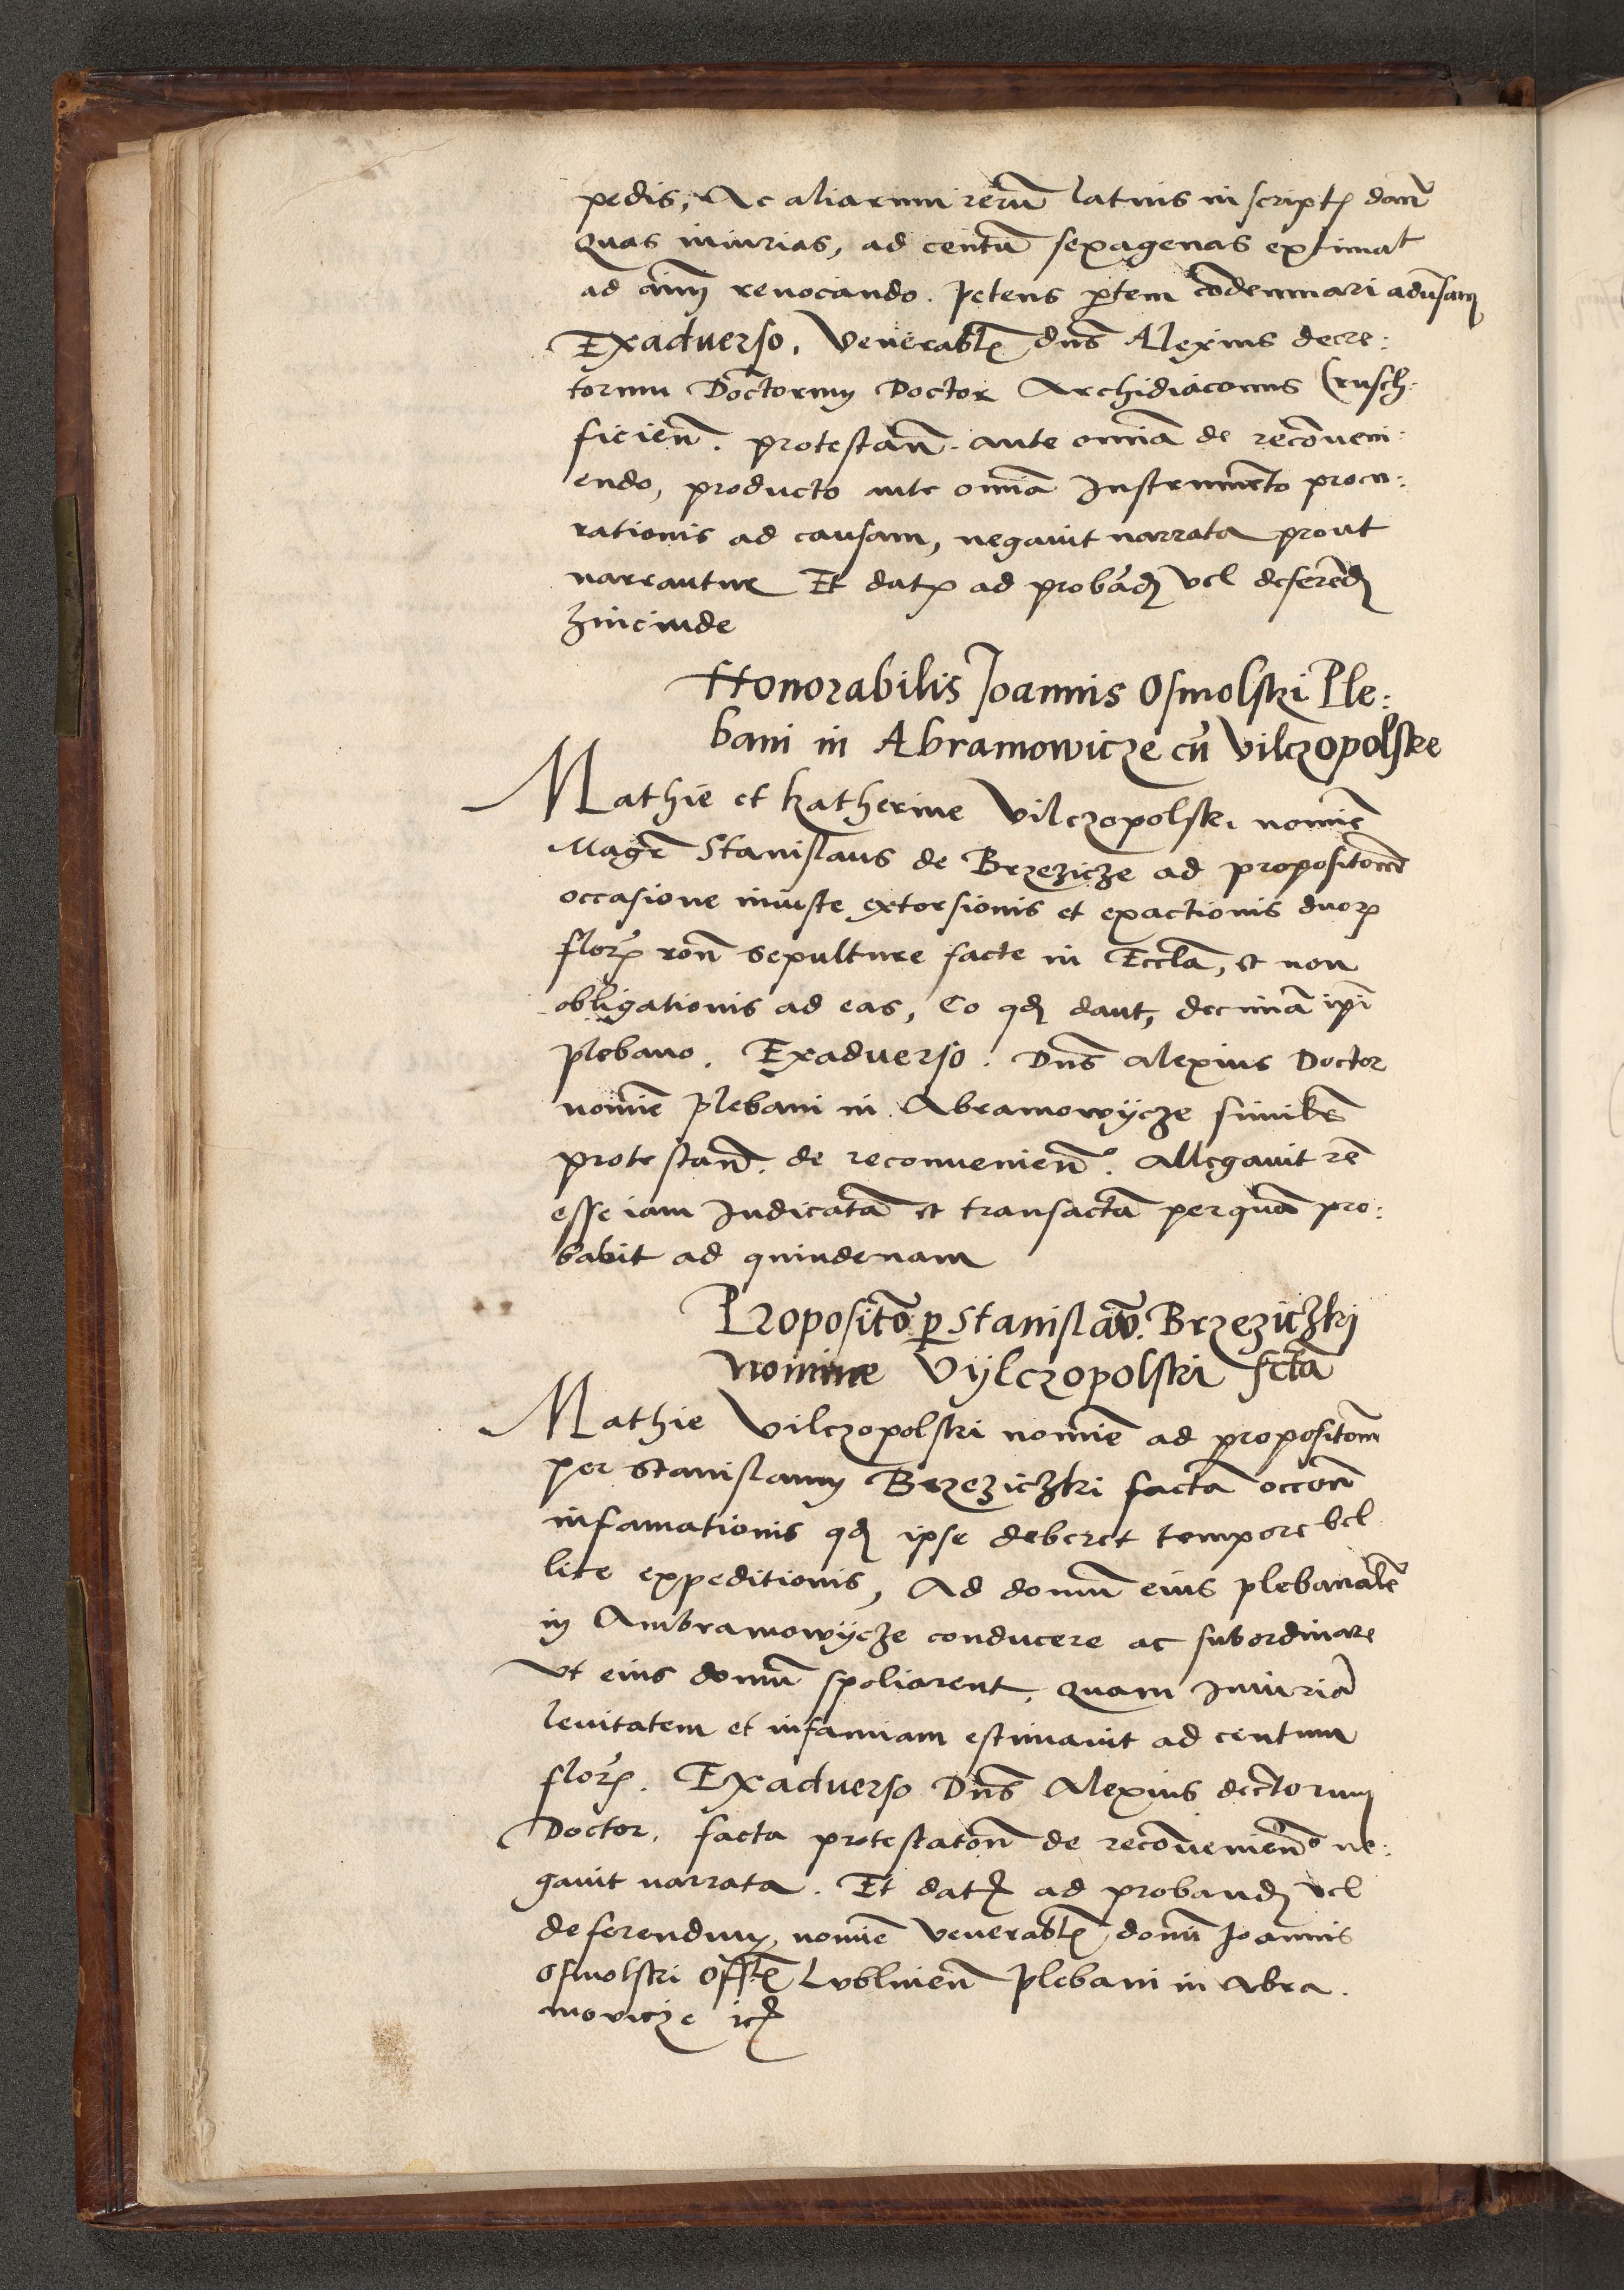 pedis, Ac aliarum rerū latius in script dann̄
quas iniurias, ad centū sexagenas extimat
ad aīm reuocando. Petens ꝑtem cōdemnari aduersam
Exaduerso. Venerabl̄ dn̄s Alexius decre:
torum Doctorum Doctor Archidiaconus Crusch:
ficien̄. protestan̄. ante omīa de recōueni:
endo, producto ante omīa Instrumēto procu:
rationis ad causam, negauit narrata prout
narrantur Et datꝰ ad probād vel deferēd
hincinde
Honorabilis Joannis Osmolski Ple:
bani in Abramowicze cū Vilczopolske
Mathie et Katherine Vilczopolski nomīe
Magr̄ Stanislaus de Brzezicze ad propositōnē
occasione iniuste extorsionis et exactionis duoꝝ
floꝝ rōn̄ sepulture facte in Eccl̄a, et non
obligationis ad eas, Eo qd dant, decimā ip̄i
plebano. Exaduerso. Dn̄s Alexius Doctor
nomīe plebani in Abramowÿcze similr̄
protestan̄. de reconuenien̄º. Allegauit rē
esse iam Iudicatā et transactā perquā pro:
babit ad quindenam
Propositō ꝑ Stanislaū. Brzeziczki
nomine Vÿlczopolski fctā
Mathie Vilczopolski nomīe ad propositōnē
per Stanislaum Brzeziczki factā occōn̄
infamationis qd ipse deberet tempore bel
lice expeditionis, Ad domū eius plebanalē
in Ambramowÿcze conducere ac subordinare
Vt eius domū spoliarent, quam Iniuriā
leuitatem et infamiam estimauit ad centum
floꝝ. Exaduerso Dn̄s Alexius dec̄torum
Doctor. facta protestatōn̄ de recōuenien̄º ne:
gauit narrata. Et datꝰ ad proband vel
deferendum nomīe Venerabl̄ domī Joannis
Osmolski Offl̄ Lublinen̄ Plebani in Abra.
mouicze